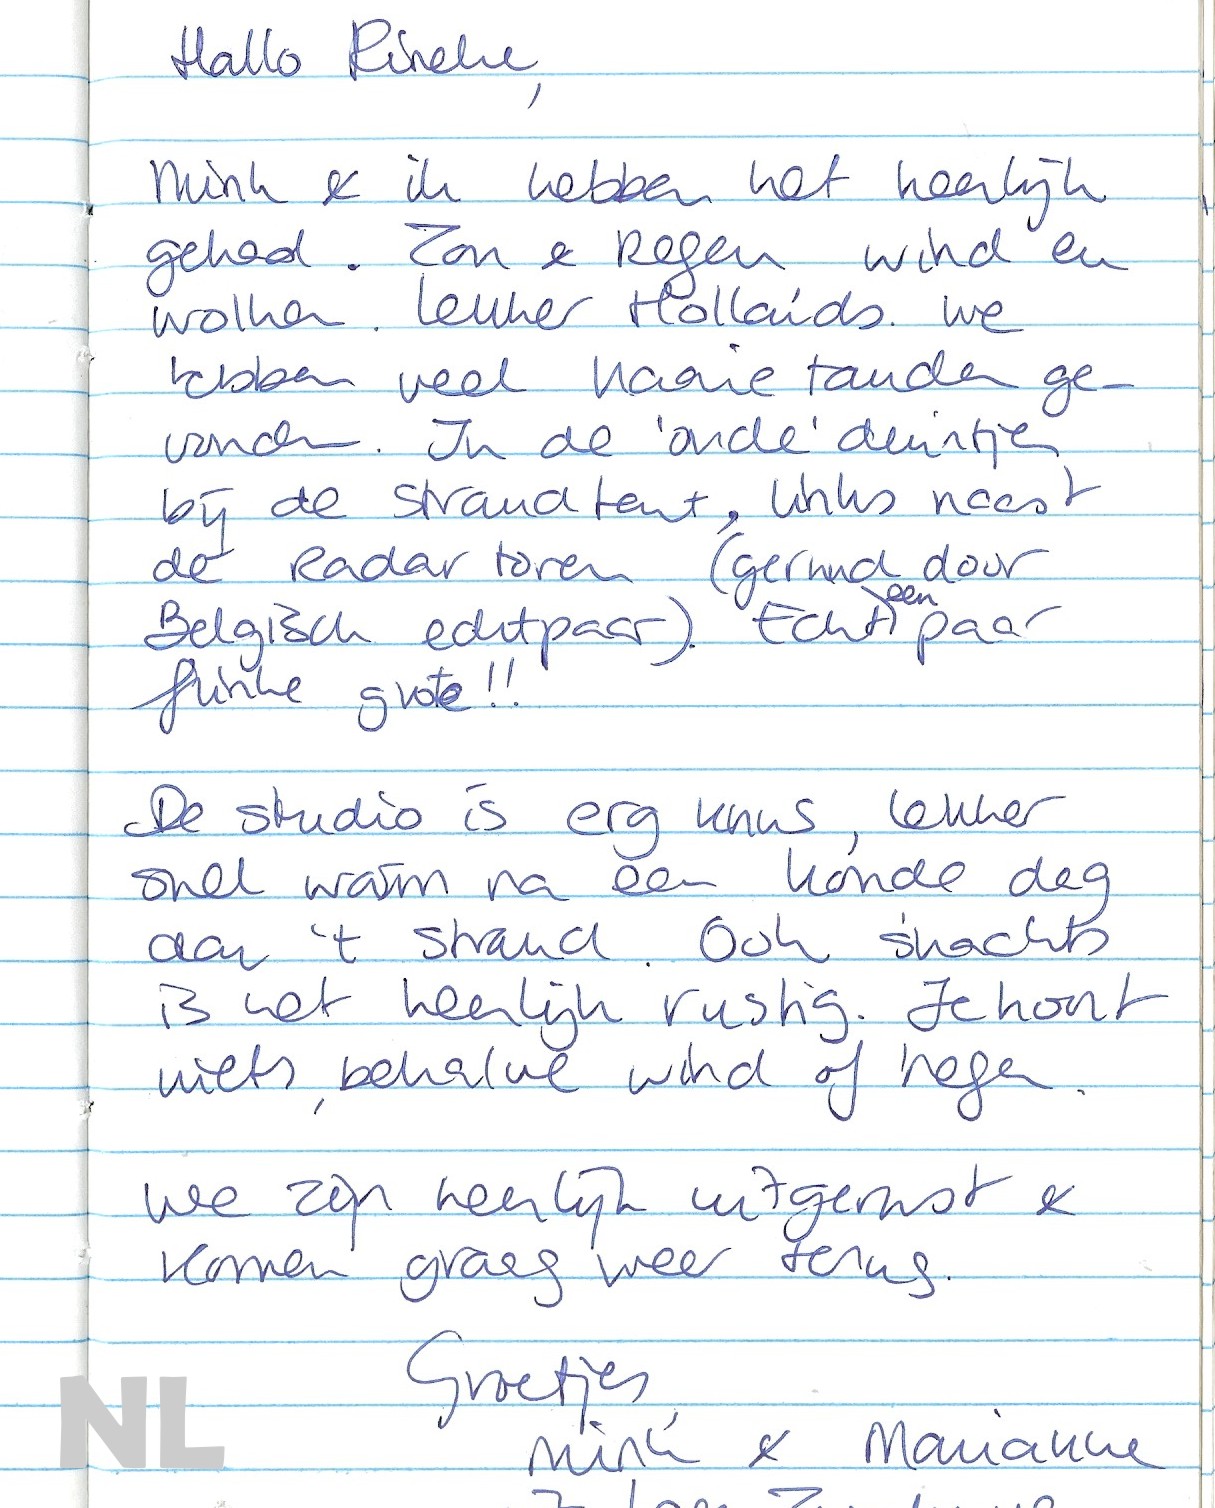 Hallo Rineke,
Mink & ik hebben het heerlijk
gehad. Zon & Regen wind en
wolken. Lekker Hollands. We
hebben veel haaie tanden ge-
vonden. In de 'oude' duintjes
bij de strandtent, links naast
de Radar toren (gerund door
Belgisch echtpaar). Echt een paar
flinke grote!!
De studio is erg knus, lekker
snel warm na een koude dag
aan 't strand. Ook s'nachts
is het heerlijk rustig. Je hoort
niets, behalve wind of regen.
We zijn heerlijk uitgerust &
komen graag weer terug.
Groetjes,
Mink & Marianne
NL